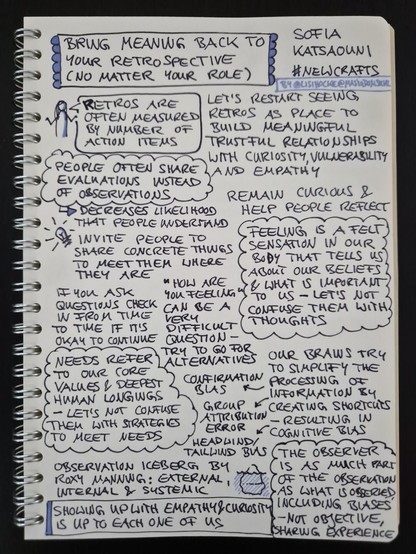 BRING MEANING BACK TO
YOUR RETROSPECTIVE
(NO MATTER YOUR ROLE)
SOFIA
KATSAOUNI
#NEWCRAFTS
RETROS ARE
OFTEN MEASURED
BY NUMBER OF
ACTION ITEMS
LET'S RESTART SEEING
RETROS AS PLACE TO
BUILD MEANINGFUL
TRUSTFUL RELATIONSHIPS
WITH CURIOSITY, VULNERABILITY
AND EMPATHY
PEOPLE OFTEN SHARE
EVALUATIONS INSTEAD
OF OBSERVATIONS
DECREASES LIKELIHOOD
THAT PEOPLE UNDERSTAND
INVITE PEOPLE TO
SHARE CONCRETE THINGS
TO MEET THEM WHERE
THEY ARE
REMAIN CURIOUS &
HELP PEOPLE REFLECT
FEELING IS A FELT
SENSATION IN OUR
BODY THAT TELLS US
ABOUT OUR BELIEFS
& WHAT IS IMPORTANT
TO US - LET'S NOT
CONFUSE THEM WITH
THOUGHTS
IF YOU ASK
QUESTIONS CHECK
IN FROM TIME
TO TIME IF IT'S
OKAY TO CONTINUE
"HOW ARE
YOU FEELING"
CAN BE A
VERY
DIFFICULT
QUESTION -
TRY TO GO FOR
ALTERNATIVES
NEEDS REFER
TO OUR CORE
VALUES & DEEPEST
HUMAN LONGINGS
- LET'S NOT CONFUSE
THEM WITH STRATEGIES
TO MEET NEEDS
OUR BRAINS TRY
TO SIMPLIFY THE
PROCESSING OF
INFORMATION BY
CREATING SHORTCUTS
- RESULTING IN
COGNITIVE BIAS
CONFIRMATION
BIAS
GROUP
ATTRIBUTION
ERROR
HEADWIND/
TAILWIND BIAS
OBSERVATION ICEBERG BY
ROXY MANNING: EXTERNAL,
INTERNAL & SYSTEMIC
THE OBSERVER
IS AS MUCH PART
OF THE OBSERVATION
AS WHAT IS OBSERVED
INCLUDING BIASES
- NOT OBJECTIVE,
SHARING EXPERIENCE
SHOWING UP WITH EMPATHY & CURIOSITY
IS UP TO EACH ONE OF US